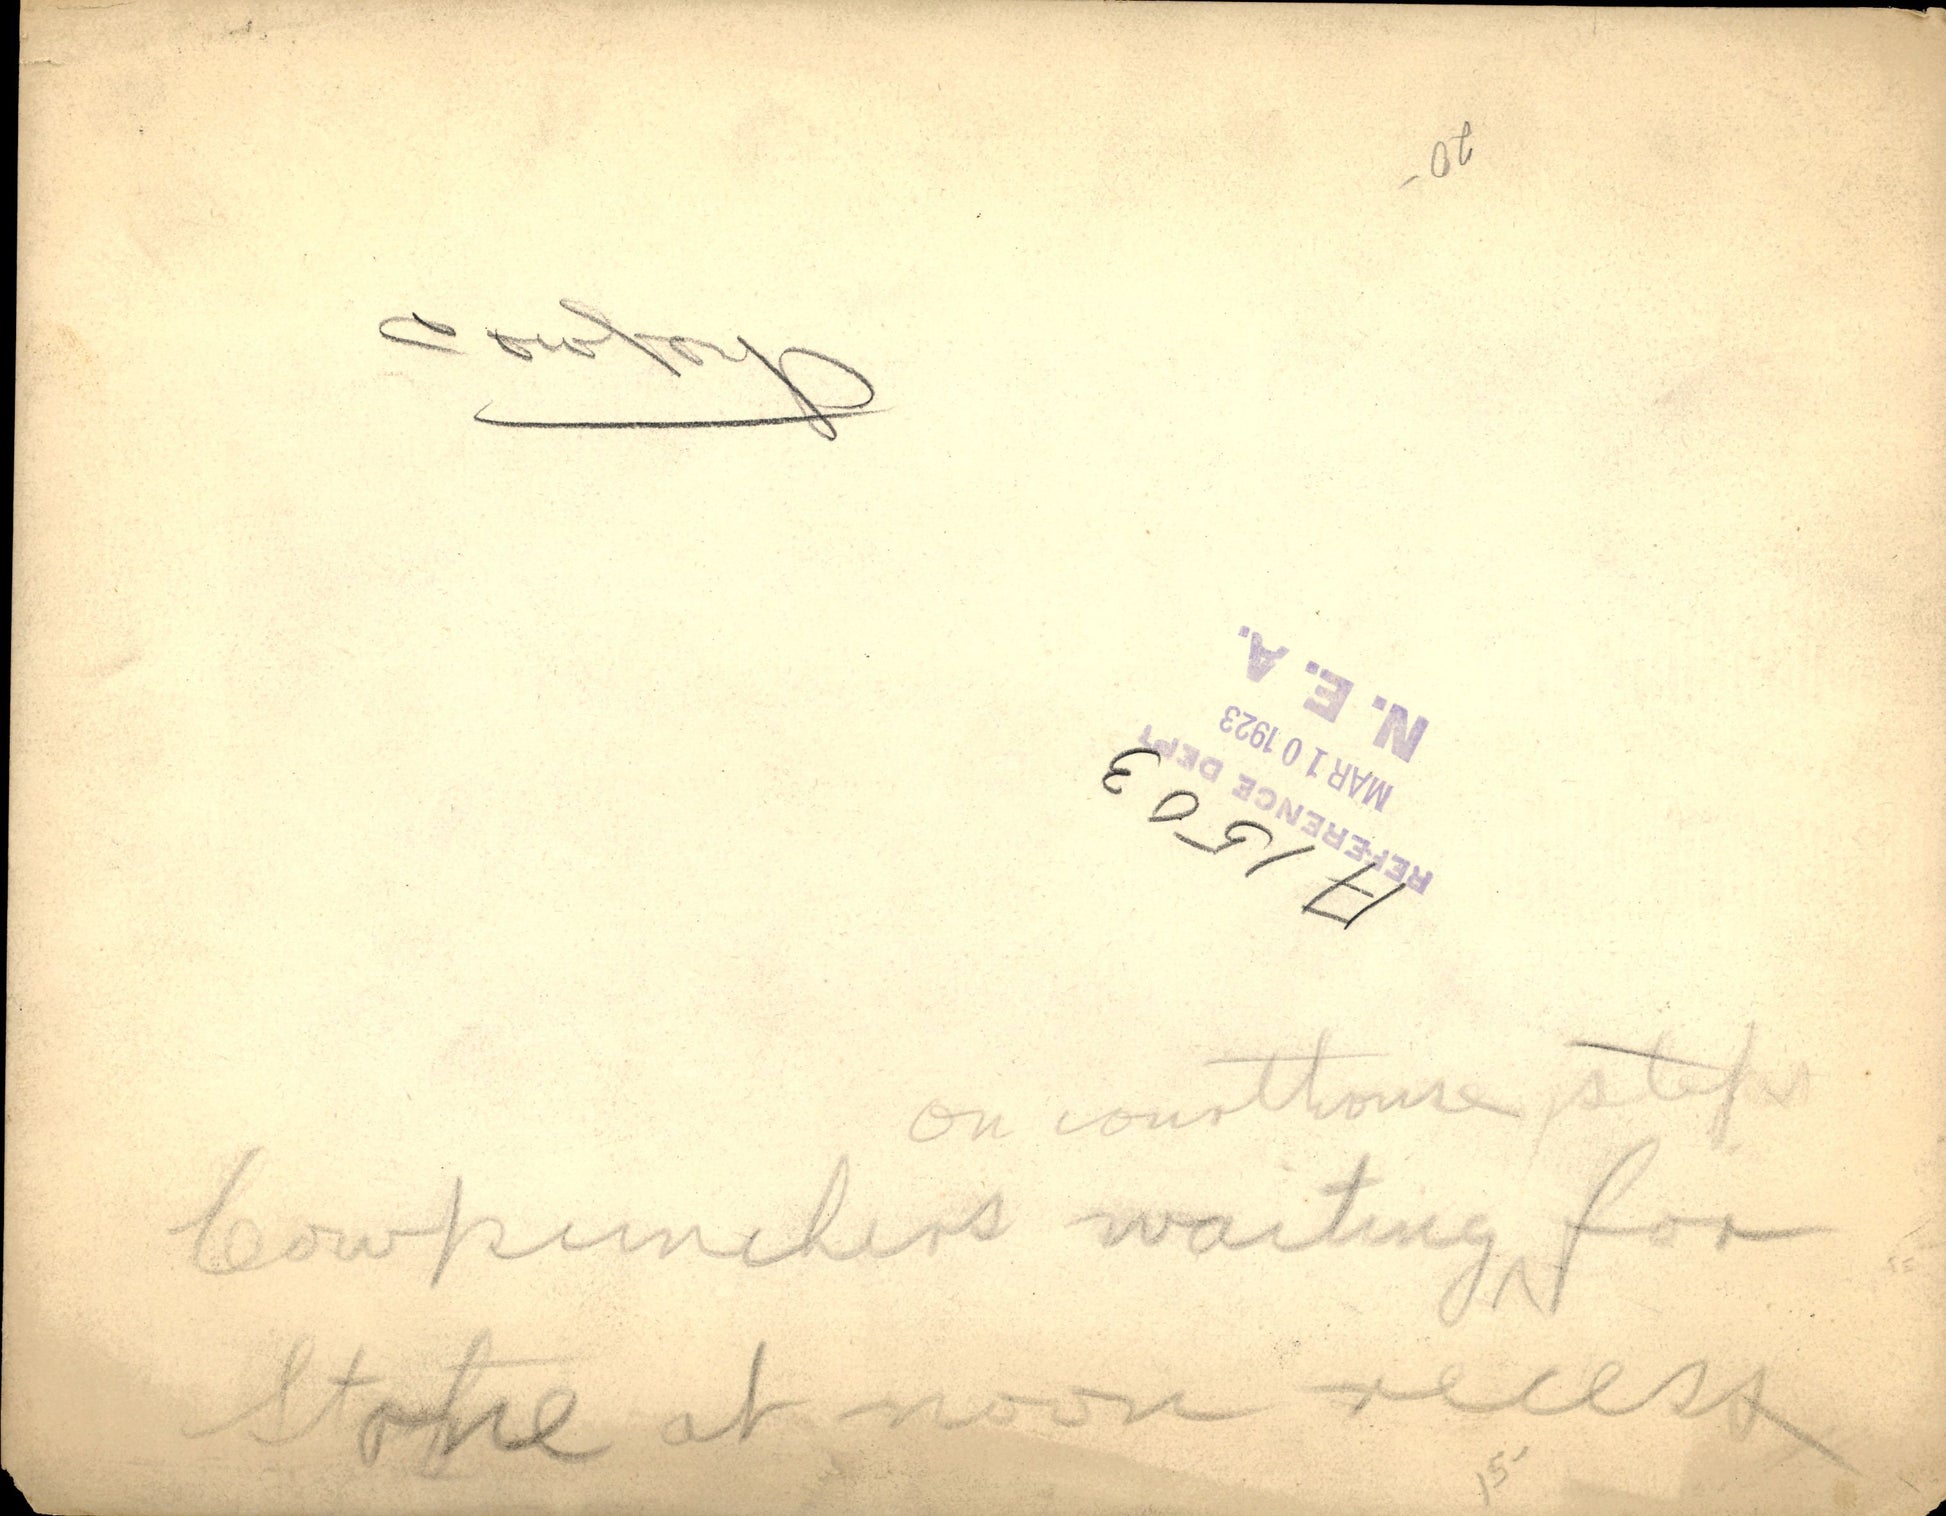 on courthouse steps
Cowpunchers waiting for
at noon recess
15-
A1503
REFERENCE DEPT
MAR 10 1923
N. E. A.
Cowboy
20-